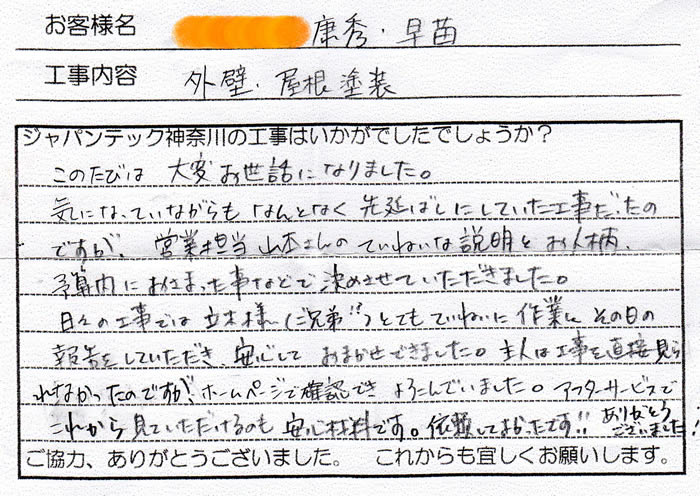 お客様名 康秀・早苗
工事内容 外壁・屋根塗装
ジャパンテック神奈川の工事はいかがでしたでしょうか？
このたびは 大変お世話になりました。
気になっていながらも なんとなく 先延ばしにしていた工事だったの
ですが、営業担当 山本さんの ていねいな説明と お人柄、
予算内に おさまった事などで 決めさせていただきました。
日々の工事では 立木様(ご兄弟!!)とてもていねいに 作業し その日の
報告をしていただき、安心して おまかせできました。主人は工事を直接見ら
れなかったのですが、ホームページで確認でき よろこんでいました。アフターサービスで
これから見ていただけるのも 安心材料です。依頼してよかったです!! ありがとう
ございました!
ご協力、ありがとうございました。 これからも宜しくお願いします。